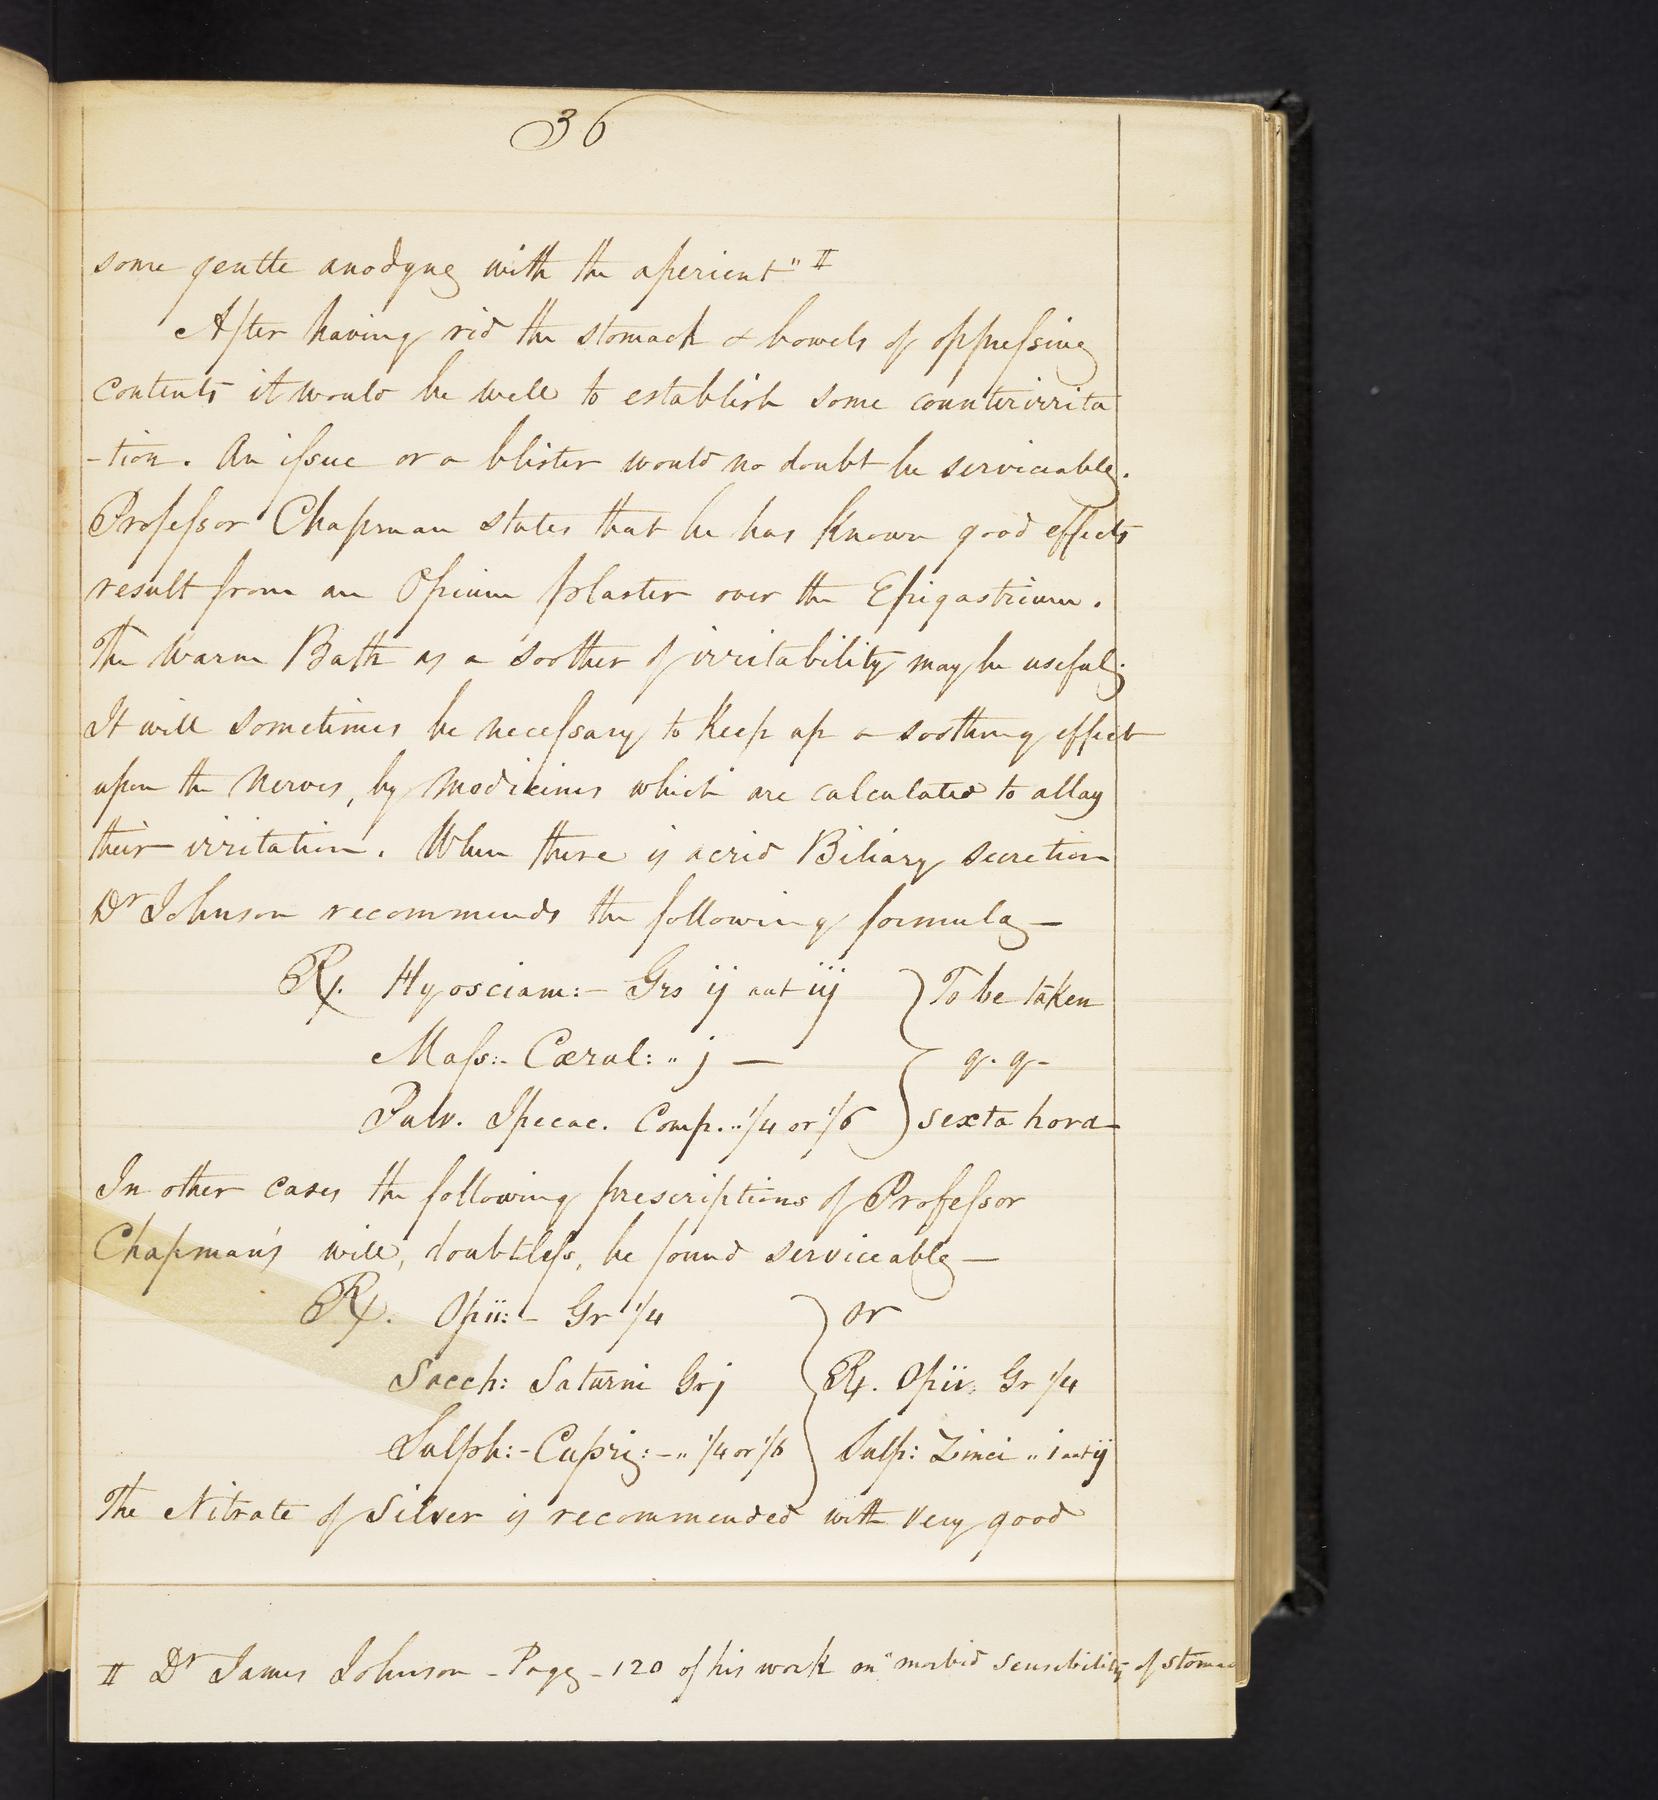 36
some gentle anodyne with the aperient" II
After having rid the stomach & bowels of oppressive
contents it would be well to establish some counterirrita
-tion. An issue or a blister would no doubt be serviceable.
Professor Chapman states that he has known good effects
result from an Opium plaster over the Epigastrium.
The Warm Bath as a soother of irritability may be useful;
It will sometimes be necessary to keep up a soothing effect
upon the Nerves, by Medicines which are calculated to allay
their irritation. When there is acrid Biliary secretion
Dr Johnson recommends the following formula —
Rx. Hyosciam:- Grs ij aut iij } To be taken
Mass:- Cærul: " j — } q. q-
Pulv. Ipecac. Comp. " 1/4 or 1/6 } sexta hora
In other cases the following prescriptions of Professor
Chapman's will, doubtless, be found serviceable —
Rx. Opii:- Gr 1/4 } or
Sacch: Saturni Gr j } Rx. Opii: Gr 1/4
Sulph:- Cupri:- " 1/4 or 1/6 } Sulp: Zinci " i aut ij
The Nitrate of Silver is recommended with very good
II Dr James Johnson - Page - 120 of his work on "morbid sensibility of stomac